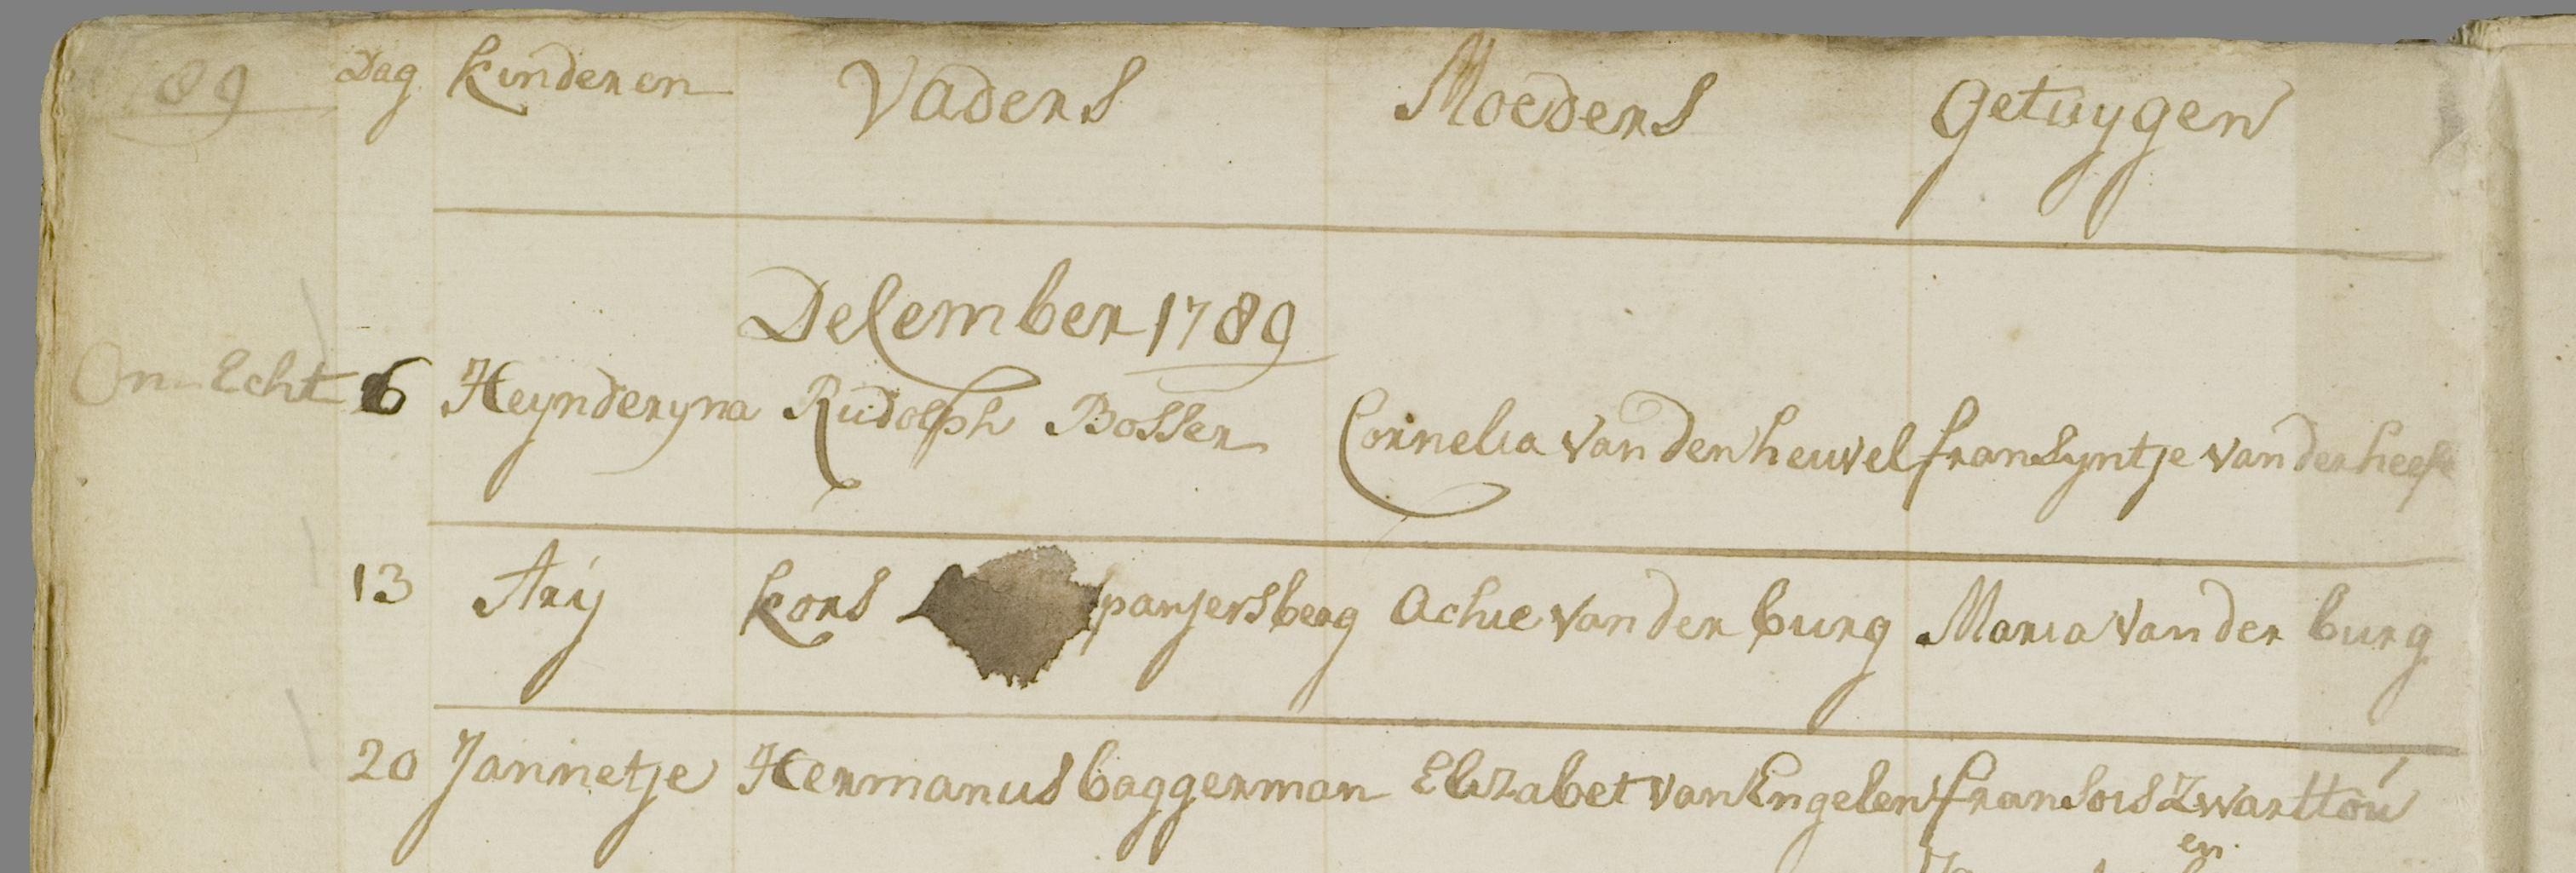 89 Dag Kinderen Vaders Moeders Getuygen
December 1789
Onn Echt 6 Heynderyna Rudolph Bosser Cornelia van den heuvel fransyntje van der heest
13 Arij Kors panjersberg Achie van der burg Maria van der burg
20 Jannetje Hermanus baggerman Elizabet van Engelen fransois Zwarttou
en